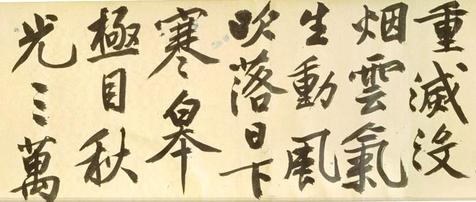 重滅没
烟雲氣
生動風
吹落日下
寒皋
極目秋
光三萬